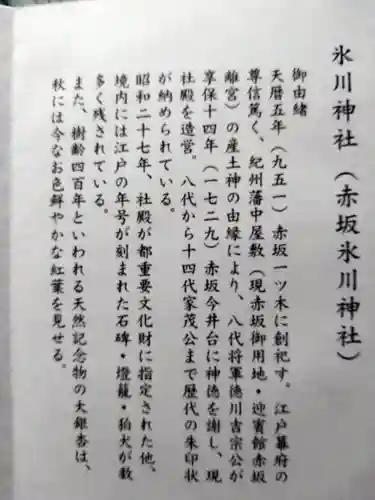 氷川神社（赤坂氷川神社）
御由緒
天暦五年（九五一）赤坂一ツ木に創祀す。江戸幕府の
尊信篤く、紀州藩中屋敷（現赤坂御用地・迎賓館赤坂
離宮）の産土神の由縁により、八代将軍徳川吉宗公が
享保十四年（一七二九）赤坂今井台に神徳を謝し、現
社殿を造営。八代から十四代家茂公まで歴代の朱印状
が納められている。
昭和二十七年、社殿が都重要文化財に指定された他、
境内には江戸の年号が刻まれた石碑・燈籠・狛犬が数
多く残されている。
また、樹齢四百年といわれる天然記念物の大銀杏は、
秋には今なお色鮮やかな紅葉を見せる。